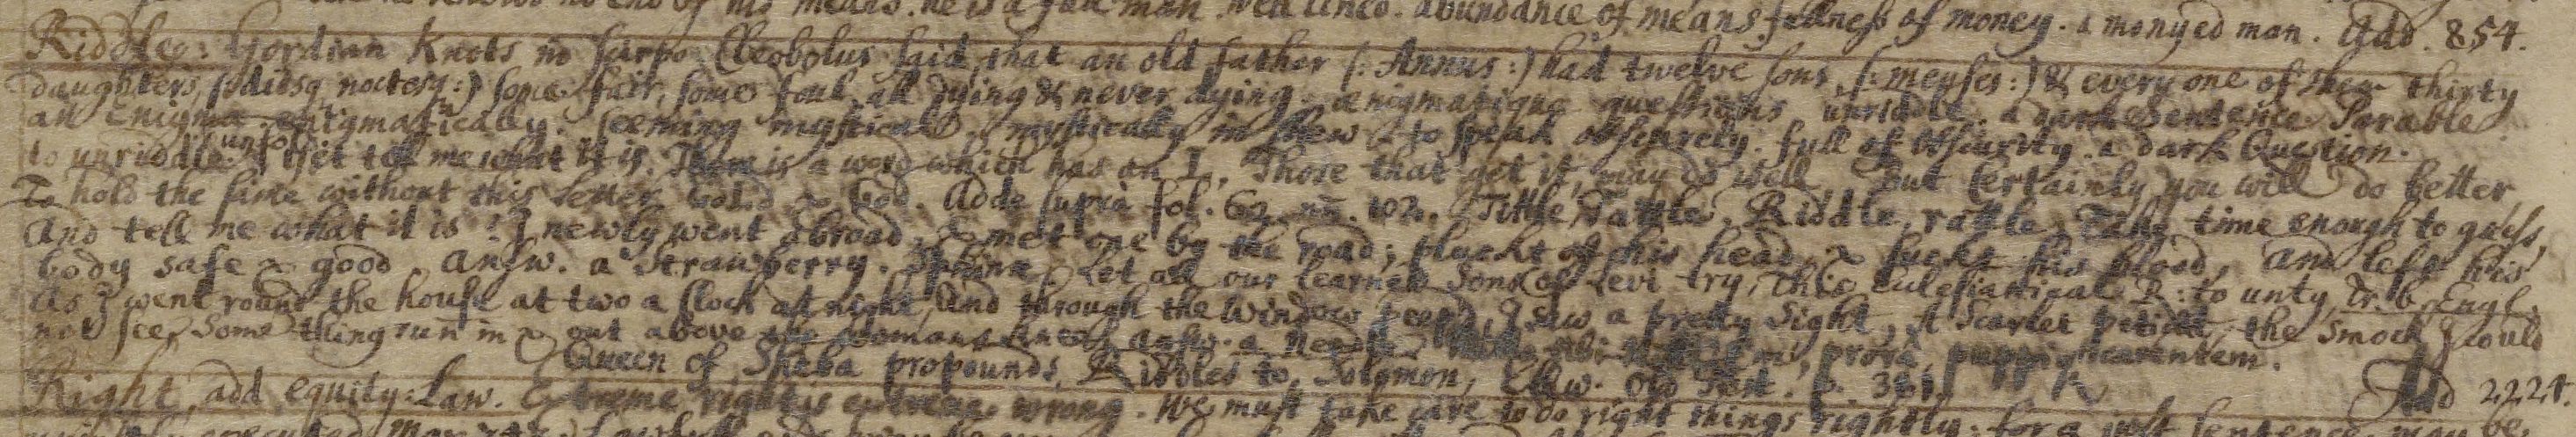 he is a full man. well lined. abundance of means. fullness of money. a monyed man. Add. 854.
Riddles: Gordian Knots Cleobolus said, that an old father (: Annus :) had twelve sons, (: menses :) & every one of them thirty
daughters, some fair, some foul, all dying & never dying. ænigmatique questions unriddle. a dark Sentence Parable
an Enigma. enigmatically. seeming mystical. mystically in shew to speak obscurely. full of obscurity. a dark Question.
to unriddle. unfold. Yet tell me what it is. There is a word which has an L, Those that get it, may do well But Certainly you will do better,
To hold the same without this letter Gold & God. Adde supra fol. 62. 102. Tittle, Tattle, Riddle, rattle, Take time enough to guess,
And tell me what it is? I newly went abroad, & met one by the road; pluckt of his head, & suckt his blood, And left his
body safe & good answ. a Strawberry. Let all our learned Sons of Levi try, This Eclesiastical R: to unty, Tr. b. Engl.
As I went round the house at two a Clock at night, And through the window peep'd, I saw a pretty Sight, A Scarlet peticoat, the Smock I could
not see, Something run in & out above the womans knees answ. a Needle
Queen of Sheba propounds Riddles to Solomon, Old Test. p. 361. Add 2224.
Right, add equity: Law. Extreme right is extreme wrong. We must take care to do right things rightly: for a just sentence may be